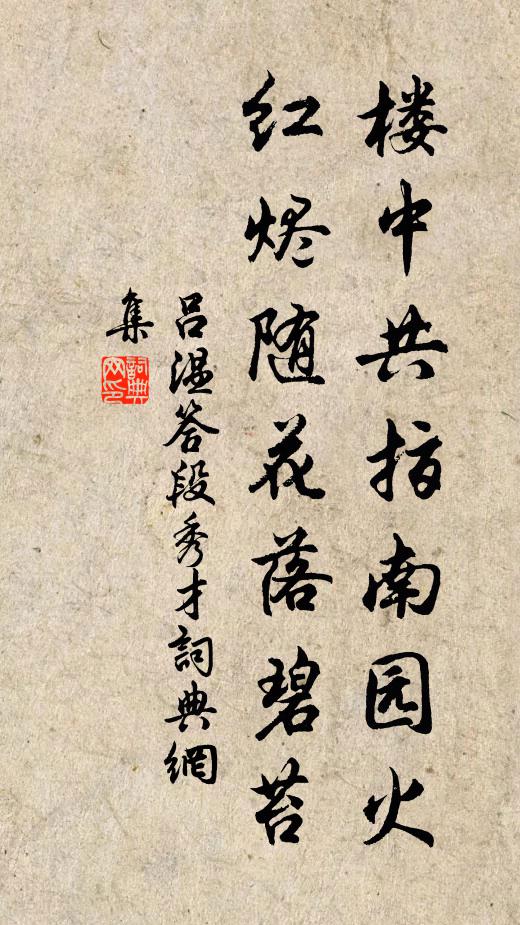 楼中共指南园火
红烬随花落碧苔
吕温答段秀才詞典網
集
詞典
网印